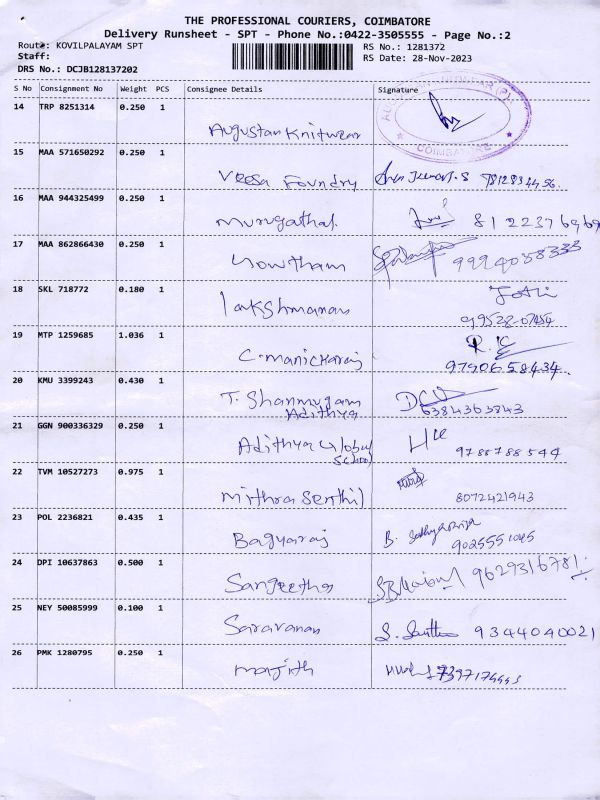 THE PROFESSIONAL COURIERS, COIMBATORE
Delivery Runsheet - SPT - Phone No.:0422-3505555 - Page No.:2
Route: KOVILPALAYAM SPT RS No.: 1281372
Staff: RS Date: 28-Nov-2023
DRS No.: DCJB128137202
S No Consignment No Weight PCS Consignee Details Signature
14 TRP 8251314 0.250 1
Augustan Knitwear
COIMBATORE
15 MAA 571650292 0.250 1
Veesa Foundry
16 MAA 944325499 0.250 1
Murugathal 8122376969
17 MAA 862866430 0.250 1
Gowtham 9994058333
18 SKL 718772 0.180 1
Lakshmanan Jothi
19 MTP 1259685 1.036 1
C. Manickaraj 9790658434
20 KMU 3399243 0.430 1
T. Shanmugam
Adithya 6384363843
21 GGN 900336329 0.250 1
Adithya Global
School 9788788544
22 TVM 10527273 0.975 1
Mithra Senthil 8072421943
23 POL 2236821 0.435 1
Bagyaraj B. Sathyapriya
9025551045
24 DPI 10637863 0.500 1
Sangeetha 9629316781
25 NEY 50085999 0.100 1
Saravanan 9344040021
26 PMK 1280795 0.250 1
Majith